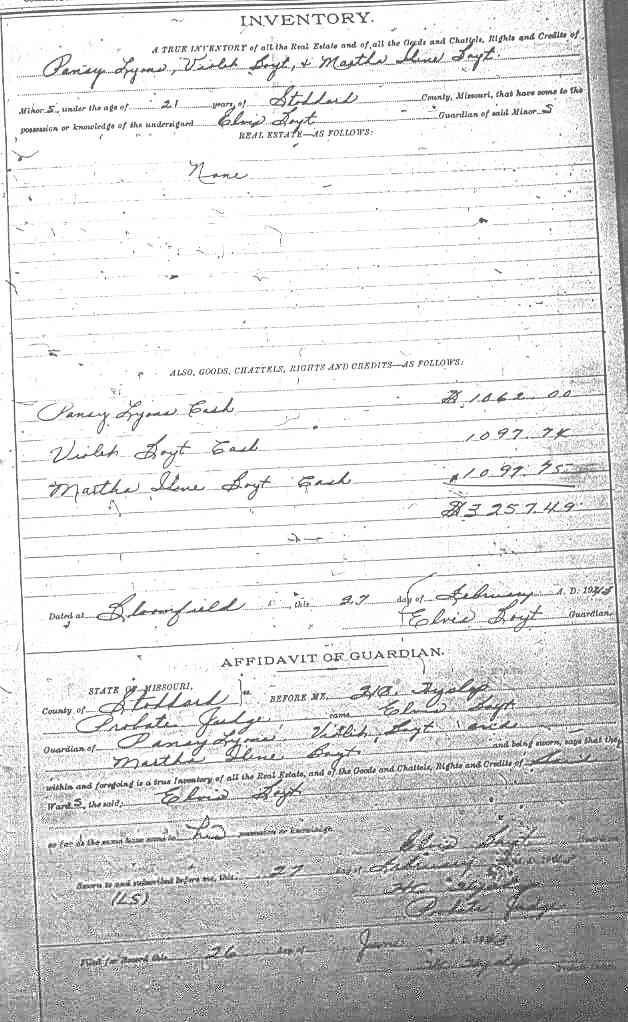 INVENTORY.
A TRUE INVENTORY of all the Real Estate and of all the Goods and Chattels, Rights and Credits of
Pansy Lyons, Violet Boyt, & Martha Ilene Boyt.
Minors, under the age of 21 years, of Stoddard County, Missouri, that have come to the
possession or knowledge of the undersigned Elvis Boyt Guardian of said Minors
REAL ESTATE—AS FOLLOWS:
None
ALSO, GOODS, CHATTELS, RIGHTS AND CREDITS—AS FOLLOWS:
Pansy Lyons Cash $1062.00
Violet Boyt Cash 1097.74
Martha Ilene Boyt Cash 1097.75
$3257.49
Dated at Bloomfield this 27 day of February A. D. 19
Elvis Boyt Guardian.
AFFIDAVIT OF GUARDIAN.
STATE OF MISSOURI,
County of Stoddard ss. BEFORE ME,
Probate Judge came Elvis Boyt
Guardian of Pansy Lyons, Violet Boyt and
Martha Ilene Boyt and being sworn, says that the
within and foregoing is a true Inventory of all the Real Estate, and of the Goods and Chattels, Rights and Credits of
Wards, the said, Elvis Boyt
so far as the same have come to his possession or knowledge.
Elvis Boyt
Sworn to and subscribed before me, this 27 day of February A. D. 19
(LS)
Probate Judge
Filed for Record this 26 day of June A. D. 19